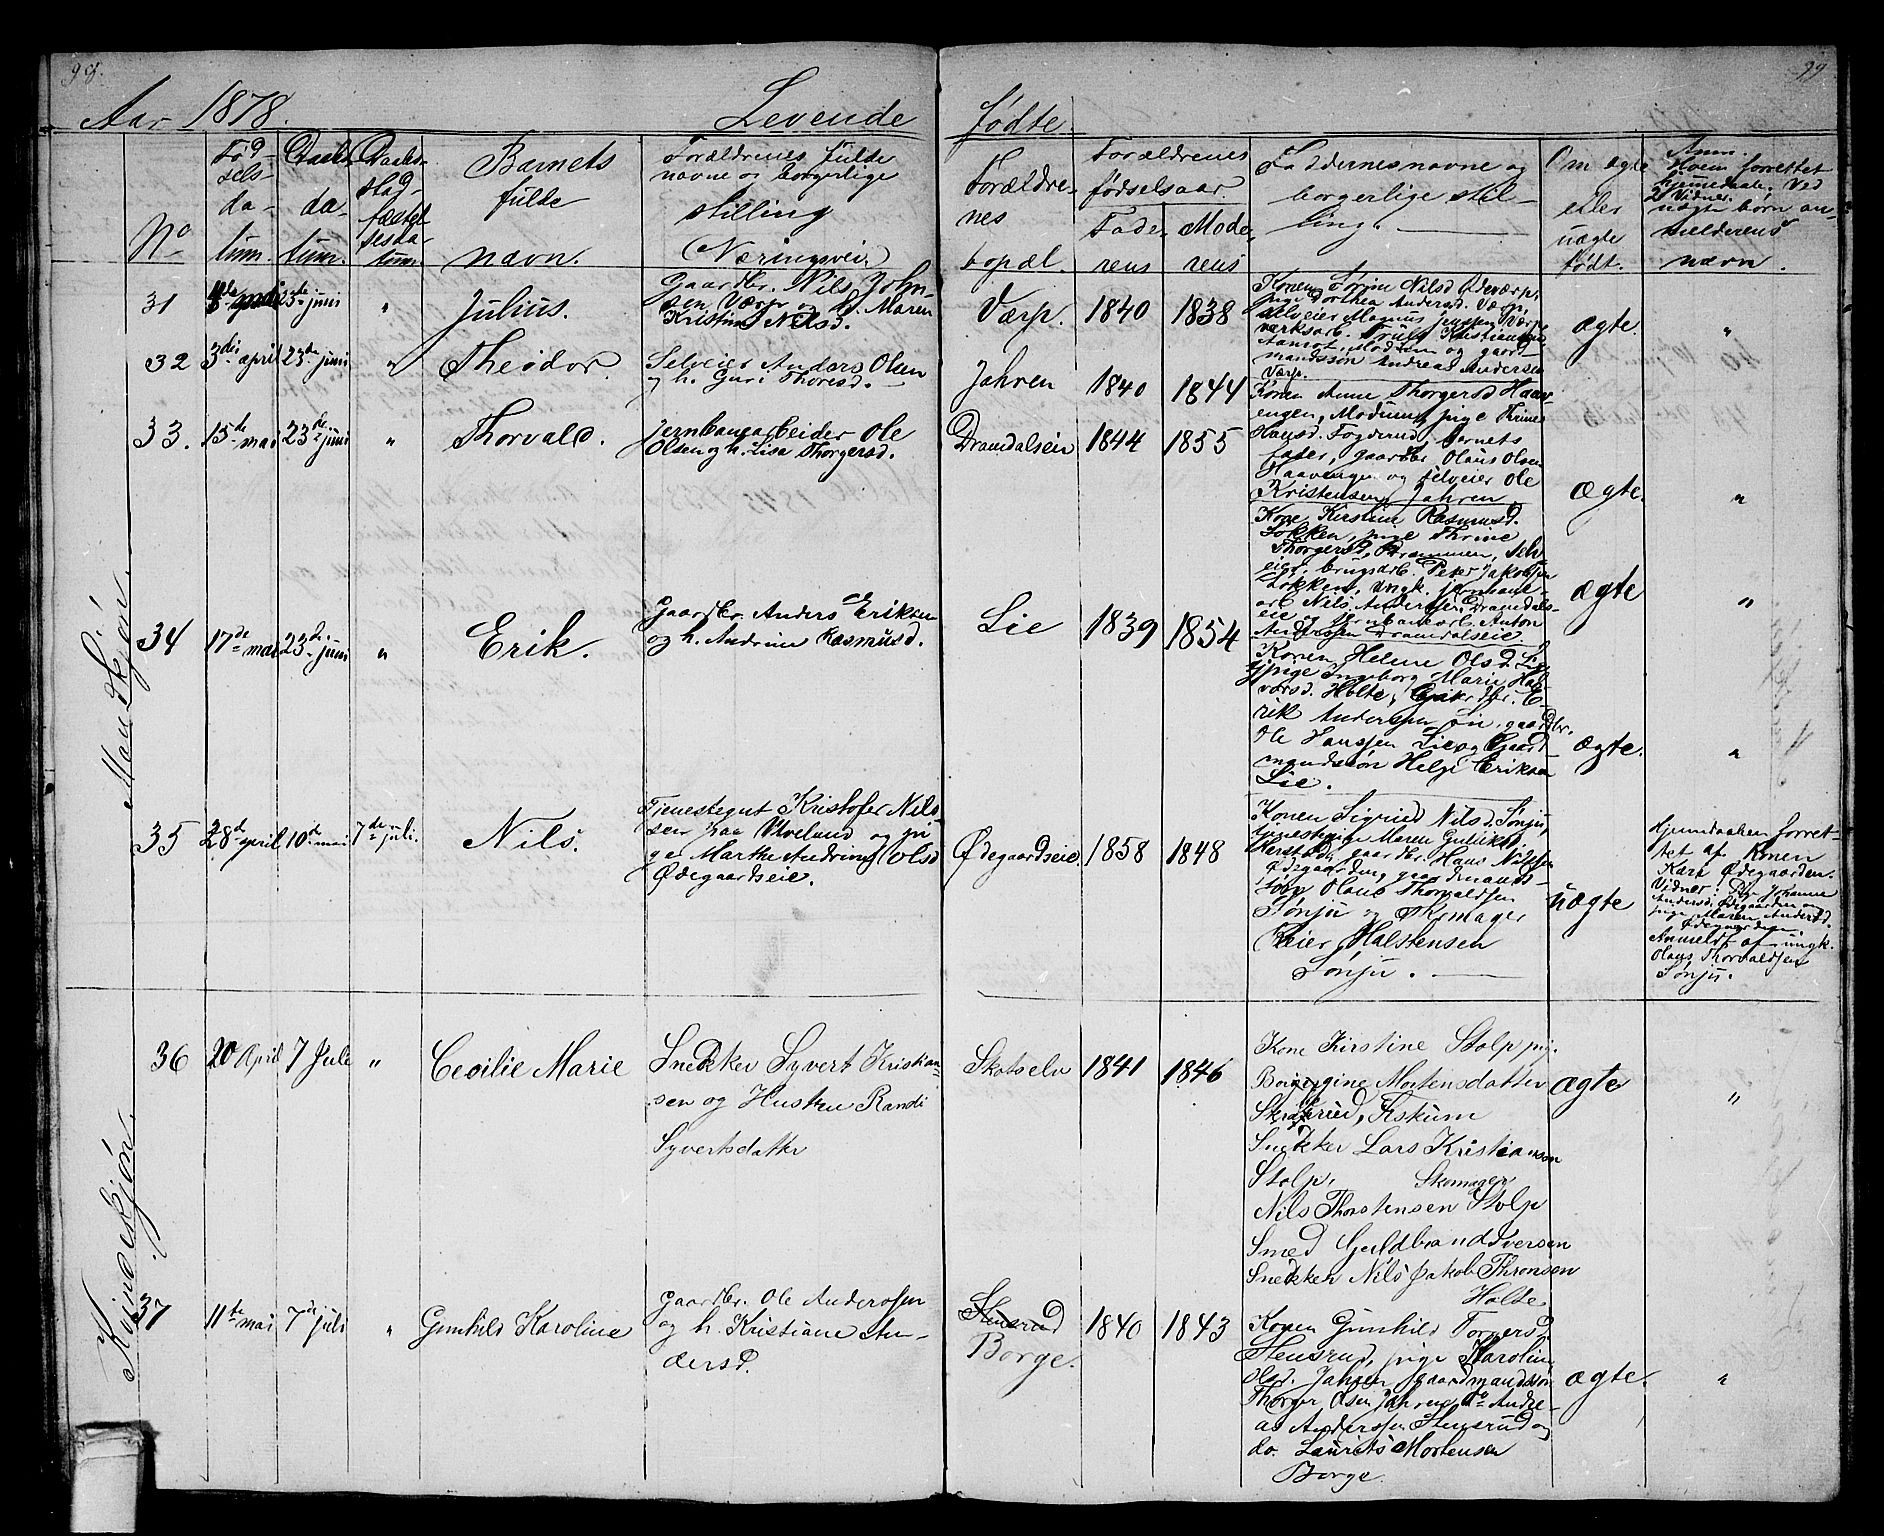 99.
99
Aar 1878.
Levende
fødte.
No
Fød-
sels-
da-
tum.
Daabs-
da-
tum.
Daabs-
stad-
fæstel-
sesda-
tum.
Barnets
fulde
navn.
Forældrenes fulde
navne og borgerlige
stilling
(Næringsvei)
Forældre-
nes
bopæl.
Forældrenes
fødselsaar.
Fade-
rens
Mode-
rens
Faddernes navne og
borgerlige stil-
ling.
Om ægte
eller
uægte
født.
Anm.
Hvem forrettet
hjemmedaab. Ved
2 Vidner.
uægte børn an-
melderens
navn.
Mandkjøn.
31
23de juni
"
Julius.
Gaardbr. Nils John-
sen Værp og h. Maren
Kristine Nilsd.
Værp.
1840
1838
Konen Nilsd
pige Dorthea Andersd. Værp,
selveier Magnus Jensen Værp
Andreas Andersen
Værp.
ægte.
"
32
3die april
23de juni
"
Theodor.
Selveier Anders Olsen
og h. Guri Thoresd.
Jahren
1840
1844
Konen Anne Thorgersd Haav-
engen, Modum, pige Thrine
Hansd. Foggerud, barnets
fader, gaardbr Olaus Olsen
Haavengen og selveier Ole
Kristensen Jahren
ægte.
"
33.
15de mai
23de juni
"
Thorvald.
jernbanearbeider Ole
Olsen og h. Lisa Thorgersd.
Dramdalseie
1844
1855
Kone Kirstine Rasmusd.
Løkken, pige Thrine
Thorgersd, Drammen, selv-
eier, brugsarb. Peter Jakobsen
Løkken, ungk. jernbane-
arb Nils Andersen, Dramdals-
eie og jernbanearb. Anton
Andersen Dramdalseie.
ægte
"
34
17de mai
23de juni
"
Erik.
Gaardbr. Anders Eriksen
og h. Andrine Rasmusd.
Lie
1839
1854
Konen Helene Olsd. Lie
pige Ingeborg Marie Hal-
vorsd. Holte, Gaardbr. E-
rik Andersen Lie, gaardbr.
Ole Hansen Lie og Gaard
mandssøn Helge Eriksen
Lie.
ægte.
"
35
28de april
10de mai
7de juli.
Nils.
Tjenestegut Kristofer Nils-
sen paa og pi
ge Marthe Andrine Olsd
Ødegaardseie.
Ødegaardseie
1858
1848
Konen Sigrid Nilsd. Sønju,
tjenestepige Maren Gulliksd
gaardbr. Hans Nilsen
Ødegaarden, gaardmands-
søn Olaus Thorvaldsen
Sønju og Skomager
Halstensen
Sønju.
uægte
Hjemdaaben forret-
tet af Konen
Kari Ødegaarden.
Vidner: Johanne
Andersd. Ødegaarden og
pige Maren Andersd.
Ødegaarden.
Anmeldt af ungk.
Olaus Thorvaldsen
Sønju.
Kvindekjøn.
36
20 April
7 Jule
"
Cecilie Marie
Snekker Syvert Kristian-
sen og Hustru Randi
Syvertsdatter
Skotselv
1841
1846
Kone Kirstine Stolp pig.
Mortensdatter
Fiskum
Snekker Lars Kristiansen
Stolp, Skomager
Nils Thorstensen Stolp
Smed Guldbrand Iversen
Snekker Nils Jakob Thronsen
Holte
ægte
"
37
11te mai
7de juli
"
Gunhild Karoline
Gaardbr. Ole Andersen
og h. Kristiane An-
dersd.
Stensrud
Borge.
1840
1843
Konen Gunhild Torgersd.
Stensrud, pige Karoline
Olsd. Jahren, gaardmandssøn
Thorger Olsen Jahren do Andre-
as Andersen Stensrud og
do. Laurits Mortensen
Borge
ægte.
"